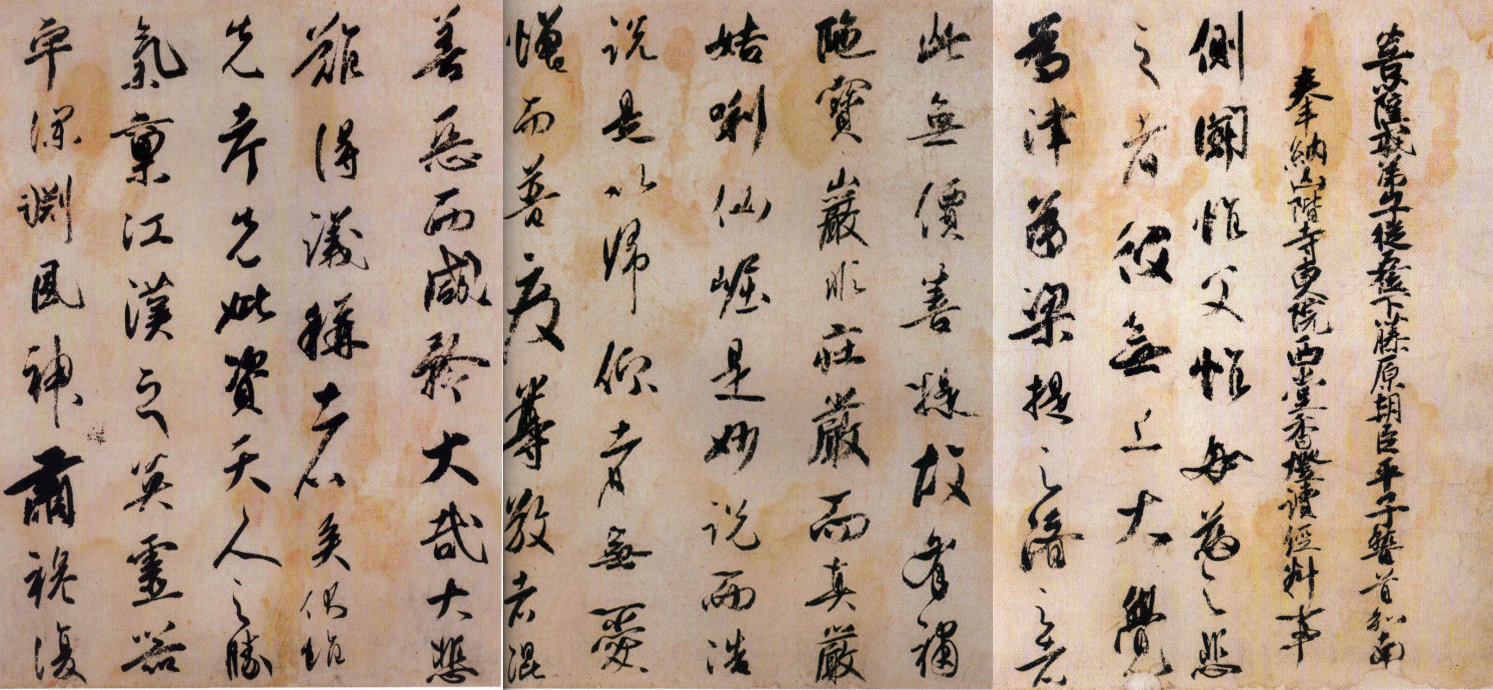 菩薩戒弟子從五位下藤原朝臣平子稽首和南
奉納山階寺東院西堂香燈讀經料事
側聞惟父惟母慈之悲
之者伇無上大覺
為津為梁提之濟之者
此無價善縁故有禰
陁寶巖形莊嚴而真嚴
姑唎仙崛是妙説而浩
説是以歸仰者無愛
憎而普度尊敬者混
善惡而咸矜大哉大悲
難得議稱者矣伏惟
先考先妣資天人之勝
氣稟江漢之英靈器
宇深淵風神肅穆復